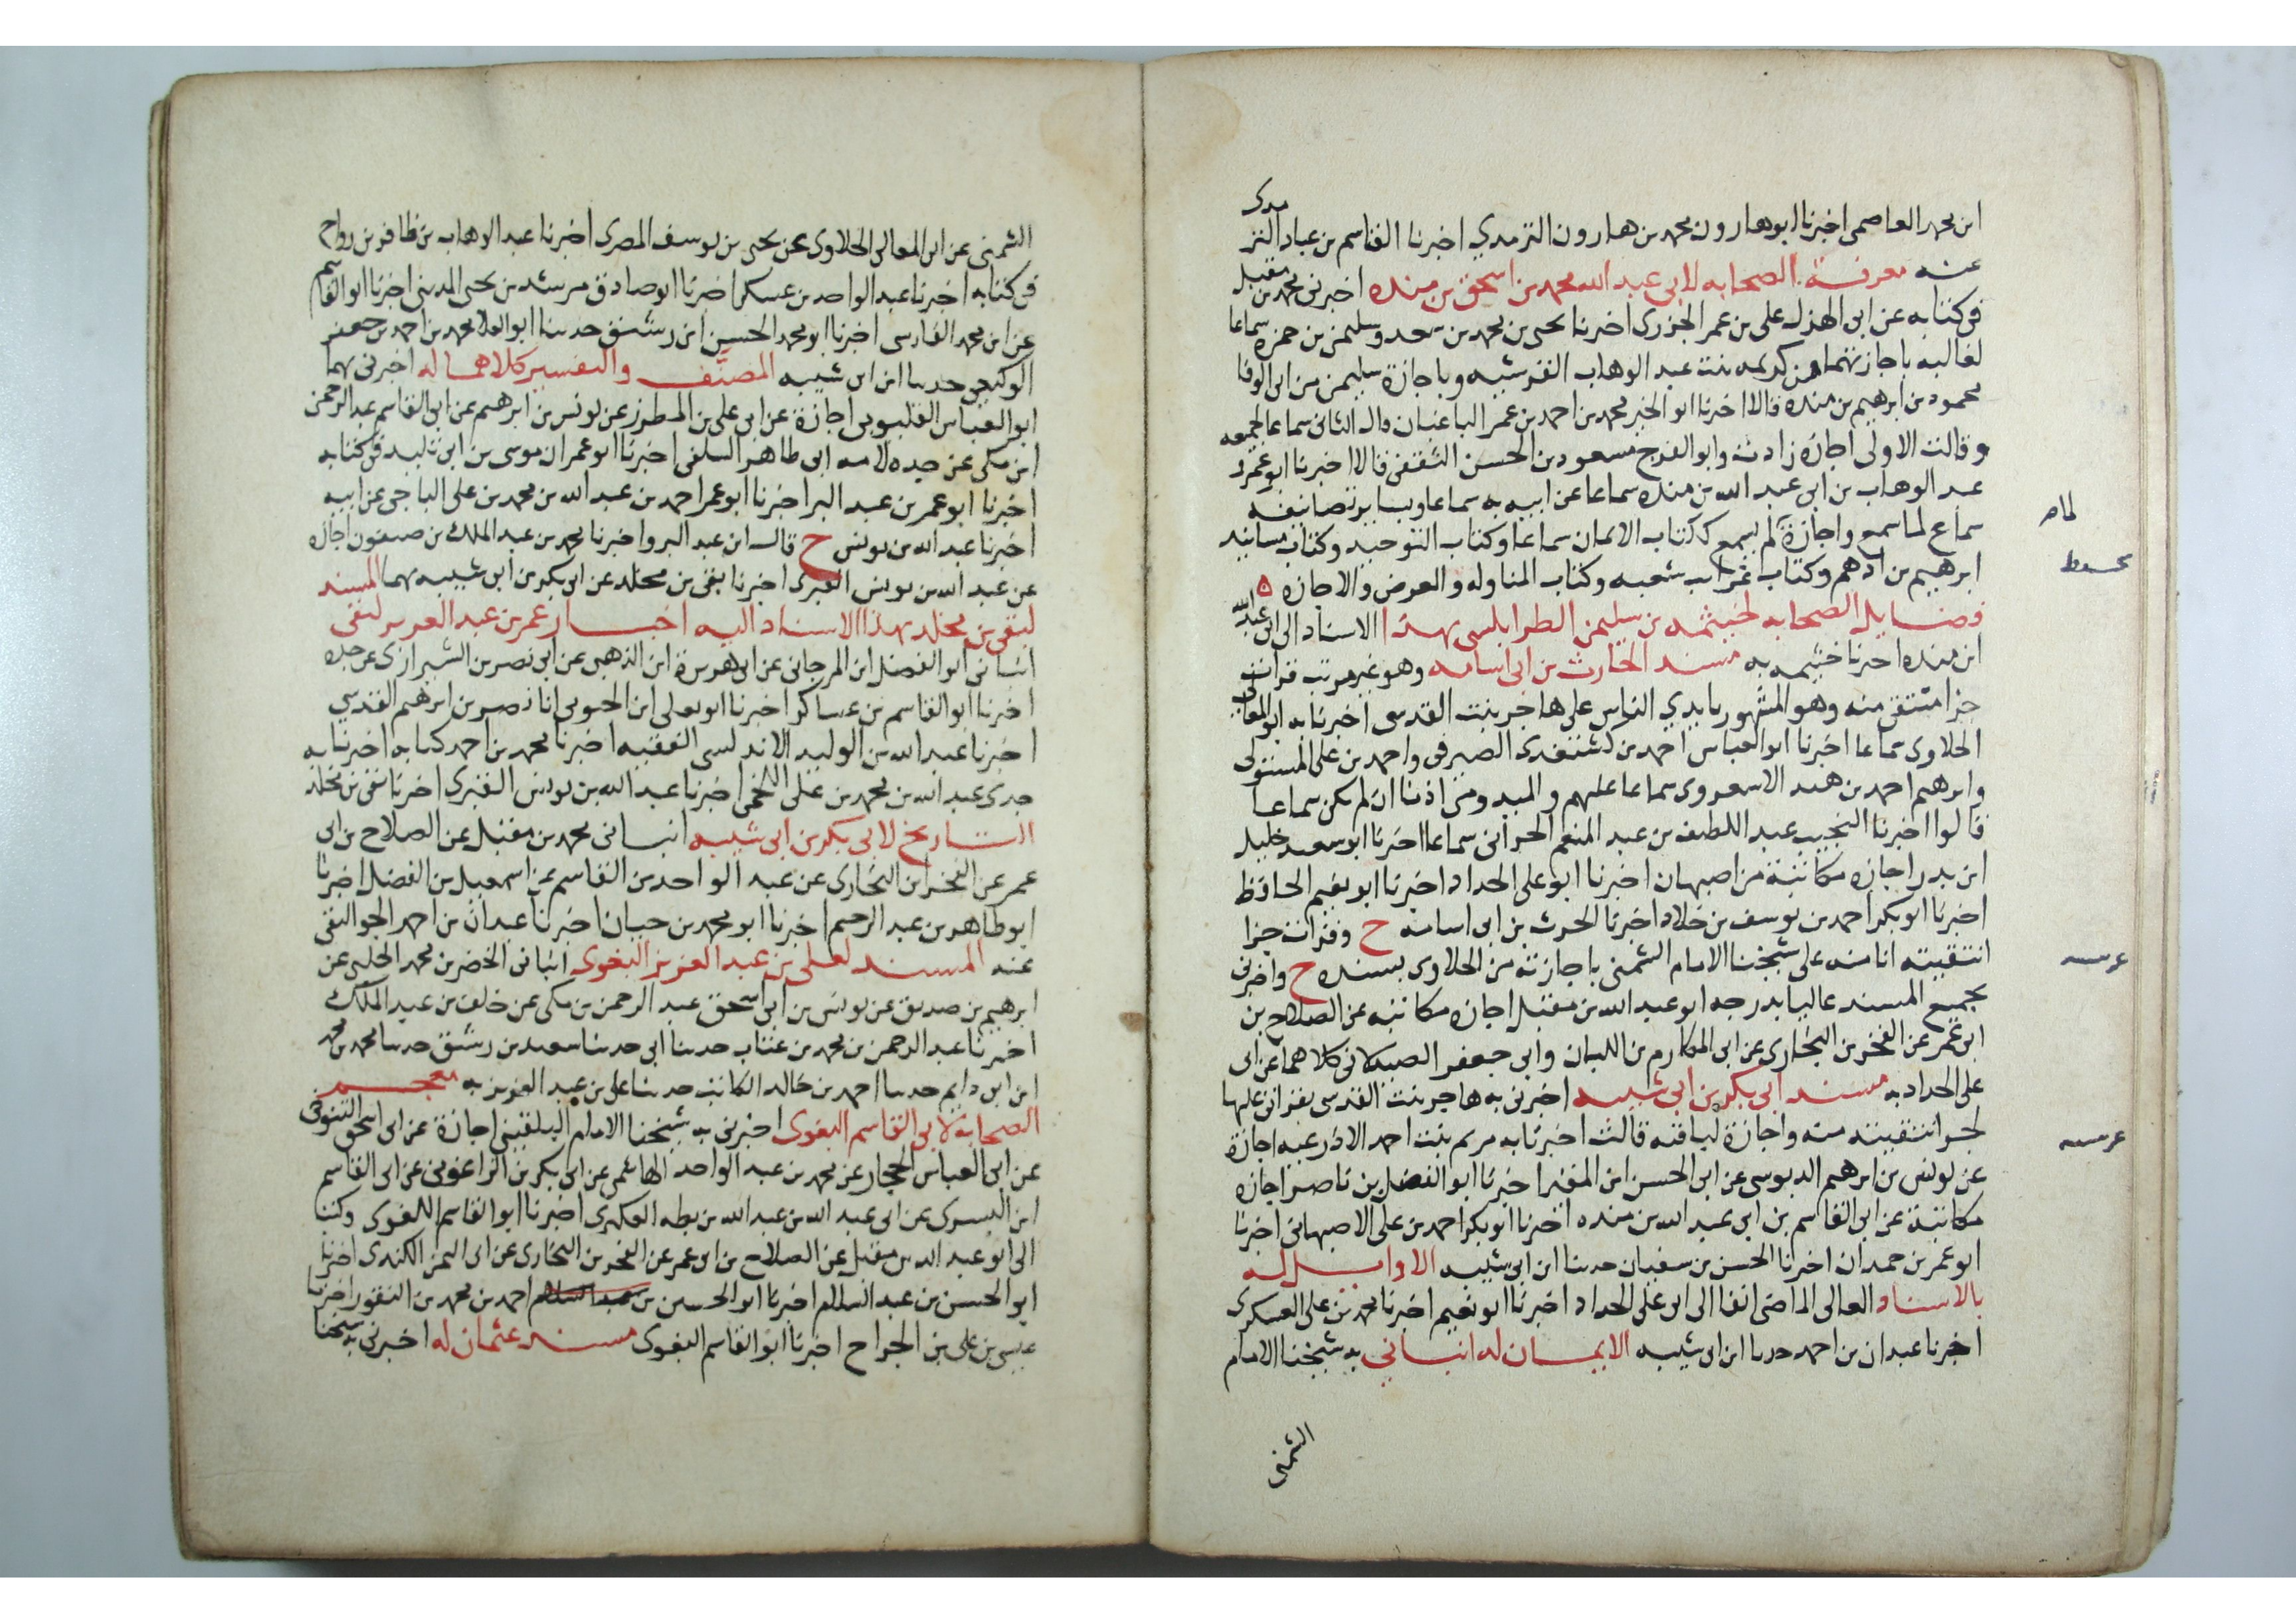 ابن محمد العاصمى اخبرنا ابو هارون محمد بن هارون الترمدي اخبرنا القاسم بن عباد التر
مدى
عنه معرفة الصحابه لابى عبد الله محمد بن اسحق بن منده اخبرنى محمد بن مقبل
فى كتابه عن ابى الهذل على بن عمر الجزرى اخبرنا يحيى بن محمد بن سعد وسليمن بن حمزه سماعا
لغالبه باجازتهما من كريمه بنت عبد الوهاب القرشيه وباجازة سليمن من ابى الوفا
محمود بن ابرهيم بن منده قالا اخبرنا ابو الخير محمد بن احمد بن عمر الباغبان قال الثانى سماعا لجميعه
وقالت الاولى اجازه زادت وابو الفرج مسعود بن الحسن الثقفى قالا اخبرنا ابو عمرو
عبد الوهاب بن ابى عبد الله بن منده سماعا عن ابيه به سماعا وبساير تصانيفه
سماع لما سمع واجازة لم يسمع ككتاب الايمان سماعا وكتاب التوحيد وكتاب مسانيد
ابرهيم بن ادهم وكتاب غرايب شعبه وكتاب المناوله والعرض والاجازه
فضايل الصحابه لخيثمه بن سليمن الطرابلسى بهذا الاسناد الى ابى عبد الله
ابن منده اخبرنا خثيمه به مسند الحارث بن ابى اسامه وهو غير مرتب قرات
جزا منتقى منه وهو المشهور بايدي الناس على هاجر بنت القدسى اخبرنا به ابو المعالى
الحلاوى سماعا اخبرنا ابو العباس احمد بن كشتغدى الصيرفى واحمد بن على المستولى
وابرهيم احمد بن هبد الاسعردى سماعا عليهم والميدومى اذنا ان لم يكن سماعا
قالوا اخبرنا النجيب عبد اللطيف بن عبد المنعم الحرانى سماعا اخبرنا ابو سعيد خليل
ابن بدر اجازه مكاتبة من اصبهان اخبرنا ابو على الحداد اخبرنا ابو نعيم الحافظ
اخبرنا ابو بكر احمد بن يوسف بن خلاد اخبرنا الحرث بن ابى اسامه ح وقرات جزا
انتقيته انا منه على شيخنا الامام الشمنى باجازته من الحلاوى بسنده ح واخبرنى
بجميع المسند عاليا بدرجه ابو عبد الله بن مقبل اجازه مكاتبه عن الصلاح بن
ابى عمر عن الفخر بن البخارى عن ابى المكارم بن اللبان وابى جعفر الصيدلانى كلاهما عن ابى
على الحداد به مسند ابى بكر بن ابى شيبه اخبرنى به هاجر بنت القدسى بقراتى عليها
لجزا انتقيته منه واجازة لباقيه قالت اخبرتنا به مريم بنت احمد الاذرعيه اجازة
عن يونس بن ابرهيم الدبوسى عن ابى الحسن ابن المقير اخبرنا ابو الفضل بن ناصر اجازه
مكاتبة عن ابى القاسم بن ابى عبد الله بن منده اخبرنا ابو بكر احمد بن على الاصبهانى اخبرنا
ابو عمر بن حمدان اخبرنا الحسن بن سفيان حدثنا ابن ابى شيبه الاوايل له
بالاسناد العالى الماضى انفا الى ابو على الحداد اخبرنا ابو نعيم اخبرنا محمد بن على العسكرى
اخبرنا عبدان بن احمد حدثنا ابن ابى شيبه الايمان له انبانى به شيخنا الامام
الشمنى
الشمنى عن ابى المعالى الحلاوى عن يحيى بن يوسف المصرى اخبرنا عبد الوهاب بن ظافر بن رواج
فى كتابه اخبرنا عبد الواحد بن عسكر اخبرنا ابو صادق مرشد بن يحيى المدينى اخبرنا ابو القاسم
عن ابن محمد الفارسى اخبرنا ابو محمد الحسن ابن رشيق حدثنا ابو العلا محمد بن احمد بن جعفر
الوكيعى حدثنا ابن ابى شيبه المصنَّف والتفسير كلاهما له اخبرنى بهما
ابو العباس القليوبى اجازة عن ابى على بن المطرز عن يونس بن ابرهيم عن ابى القاسم عبد الرحمن
ابن مكى عن جده لامه ابى طاهر السلفى اخبرنا ابو عمران موسى بن ابى تليد فى كتابه
اخبرنا ابو عمر بن عبد البر اخبرنا ابو عمر احمد بن عبد الله بن محمد بن على الباجى عن ابيه
اخبرنا عبد الله بن يونس ح قال ابن عبد البر واخبرنا محمد بن عبد الملك بن صيفون اجازه
عن عبد الله بن يونس القبرى اخبرنا بقى بن مخلد عن ابى بكر بن ابى شيبه بهما المسند
لبقى بن مخلد بهذا الاسناد اليه اخبار عمر بن عبد العزيز لبقى
انبانى ابو الفضل ابن المرجانى عن ابى هريرة ابن الذهبى عن ابى نصر بن الشيرازى عن جده
اخبرنا ابو القاسم بن عساكر اخبرنا ابو يعلى ابن الحبوبى انا نصر بن ابرهيم القدسي
اخبرنا عبد الله بن الوليد الاندلسى الفقيه اخبرنا محمد بن احمد كتابه اخبرنا به
جدى عبد الله بن محمد بن على اللخمى اخبرنا عبد الله بن يونس القبرى اخرنا بقى بن مخلد
التاريخ لابى بكر بن ابى شيبه انبانى محمد بن مقبل عن الصلاح بن ابى
عمر عن الفخر ابن البخارى عن عبد الواحد بن القاسم عن اسمعيل بن الفضل اخبرنا
ابو طاهر بن عبد الرحيم اخبرنا ابو محمد بن حيان اخبرنا عبدان بن احمد الجواليقى
عنه المسند لعلى بن عبد العزيز البغوى انبانى الخضر بن محمد الحلبى عن
ابرهيم بن صديق عن يونس بن ابى اسحق عبد الرحمن بن مكى عن خلف بن عبد الملك
اخبرنا عبد الرحمن بن محمد بن عتاب حدثنا ابى حدثنا سعيد بن رشيق حدثنا محمد بن محمد
ابن ابى دايم حدثنا احمد بن خالد الكاتب حدثنا على بن عبد العزيز به معجم
الصحابة لابى القاسم البغوى اخبرنى به شيخنا الامام البلقينى اجازة عن ابى اسحق التنوخى
عن ابى العباس الحجار عن محمد بن عبد الواحد الهاشمى عن ابى بكر بن الزاغونى عن ابى القاسم
ابن البسرى عن ابى عبد الله بن عبد الله بن بطه العكبرى اخبرنا ابو القاسم البغوى وكتب
الى ابو عبد الله بن مقبل عن الصلاح بن ابى عمر عن الفخر بن البخارى عن ابى اليمن الكندى اخبرنا
ابو الحسن بن عبد السلام اخبرنا ابو الحسين بن احمد بن محمد بن النقور اخبرنا
عيسى بن على بن الجراح اخبرنا ابو القاسم البغوى مسند عثمان له اخبرنى به شيخنا